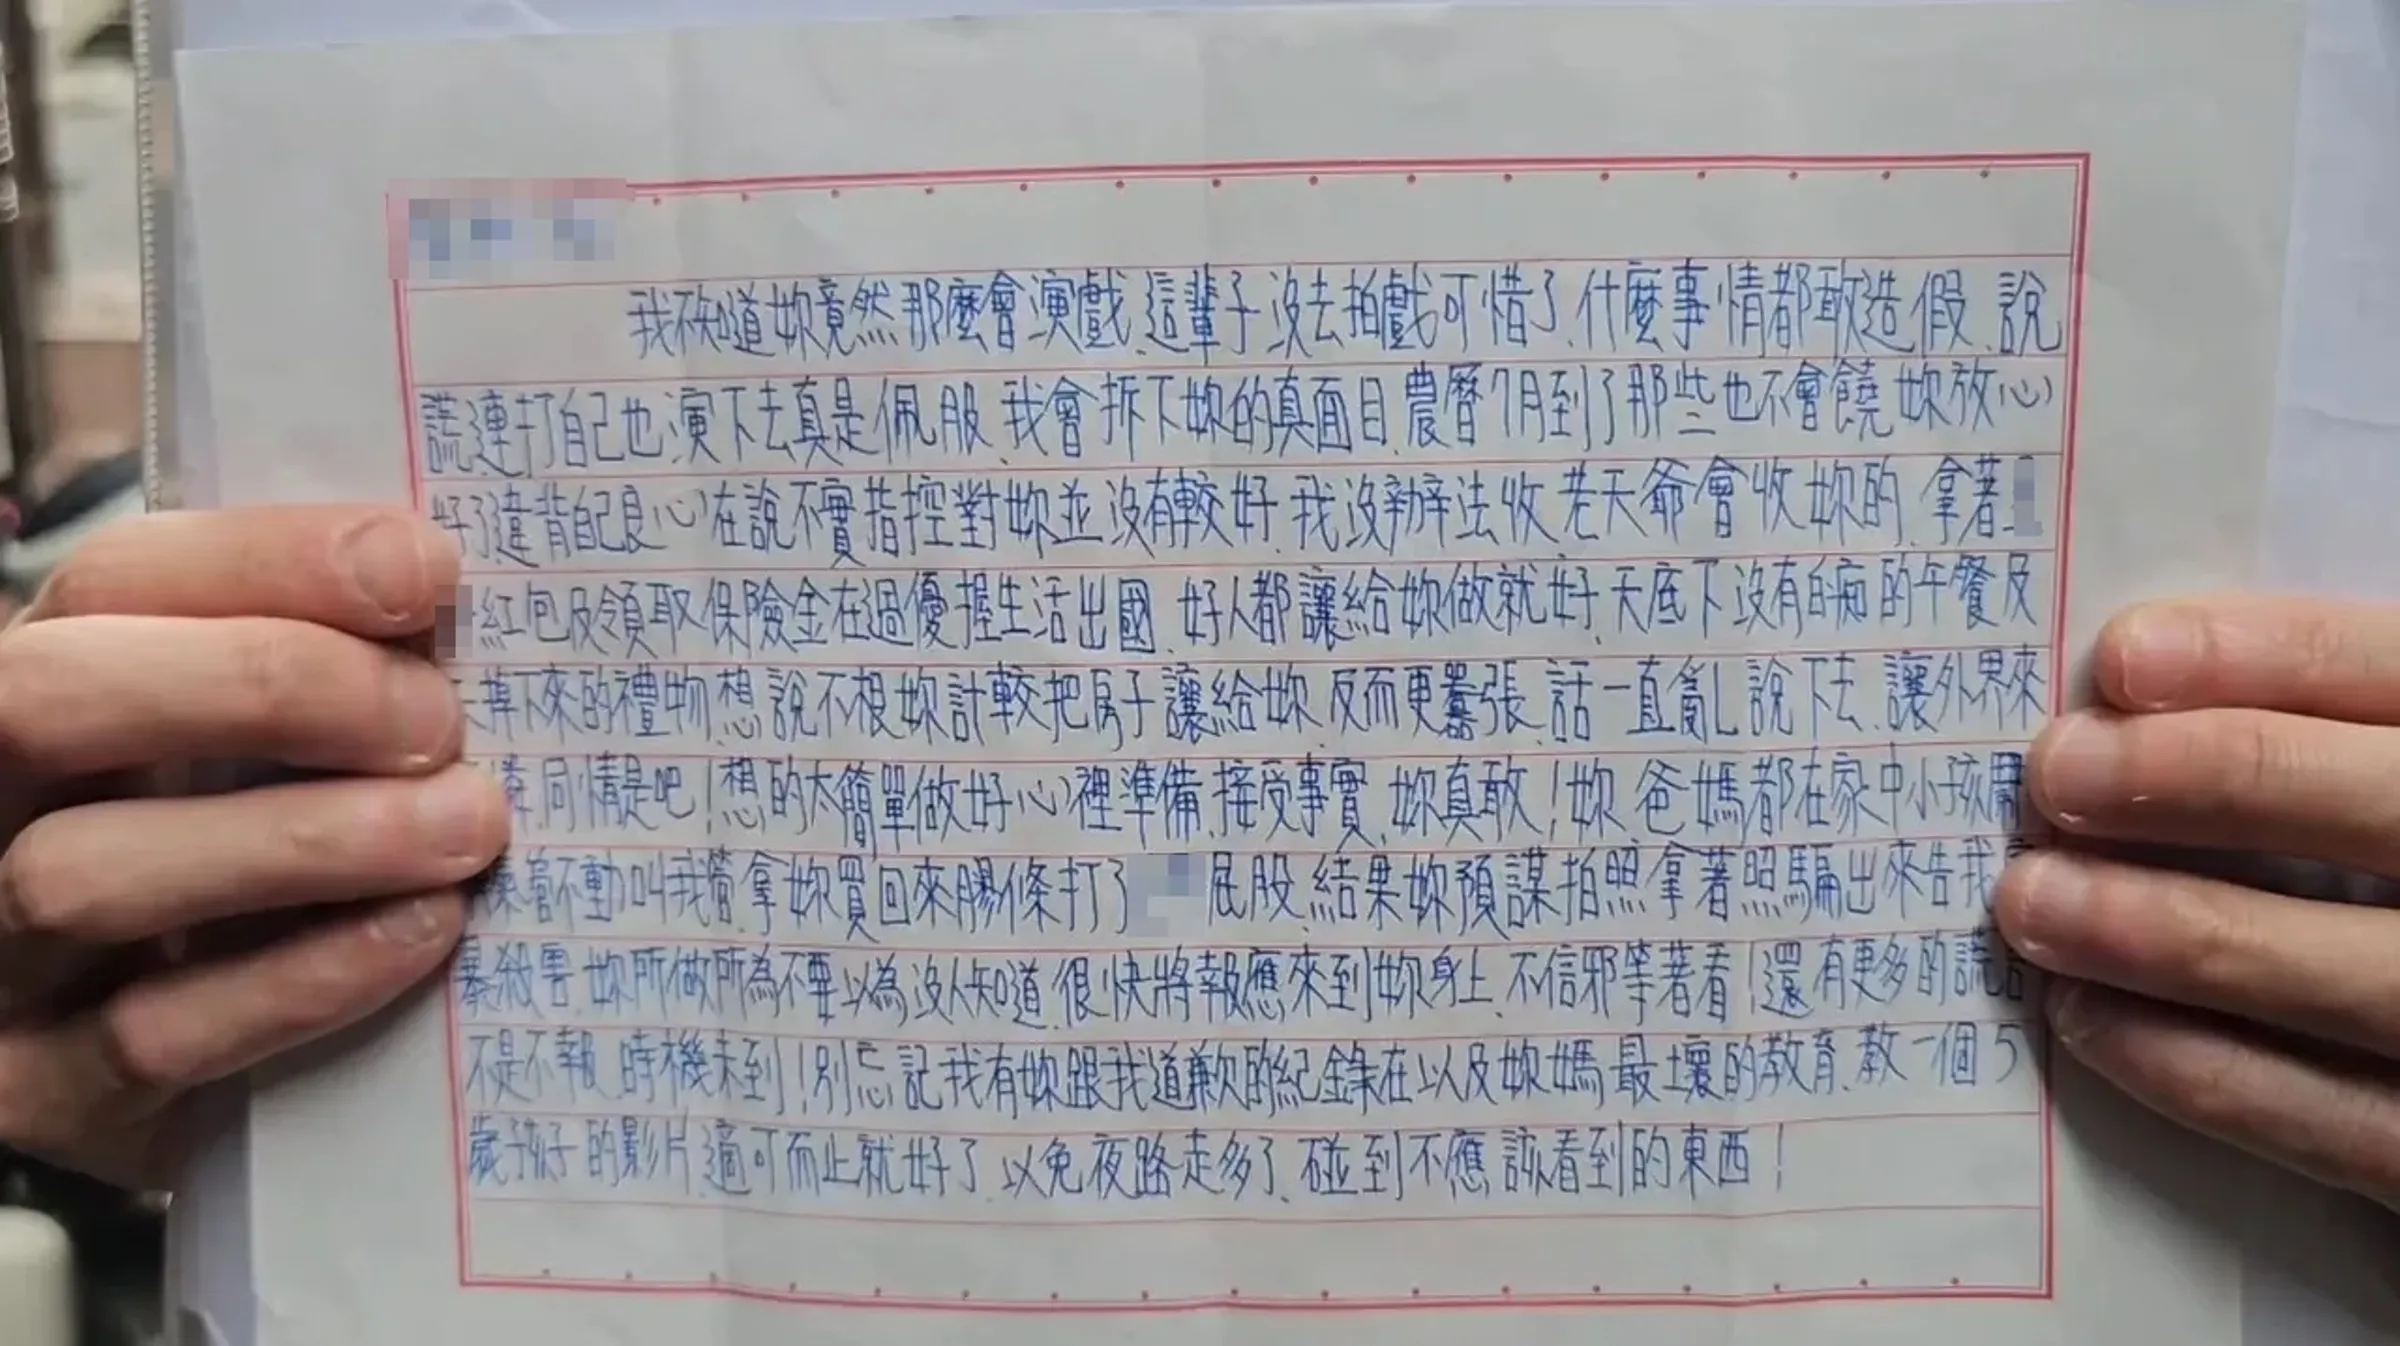 我不知道妳竟然那麼會演戲、這輩子沒去拍戲可惜了、什麼事情都敢造假、說
謊連打自己也演下去真是佩服、我會拆下妳的真面目、農曆7月到了那些也不會饒妳放心
好了違背自己良心在說不實指控對妳並沒有較好、我沒辦法收老天爺會收妳的、拿著
紅包及領取保險金在過優握生活出國、好人都讓給妳做就好、天底下沒有白痴的午餐及
掉下來的禮物、想說不根妳計較把房子讓給妳、反而更囂張、話一直亂說下去、讓外界來
同情是吧！想的太簡單做好心裡準備、接受事實、妳真敢！妳爸媽都在家中小孩
管不動叫我管、拿妳買回來膠條打了 屁股、結果妳預謀拍照拿著照騙出來告我
暴殺害、妳所做所為不要以為沒人知道、很快將報應來到妳身上、不信邪等著看！還有更多的謊
不是不報、時機未到！別忘記我有妳跟我道歉的紀錄在以及妳媽最壞的教育、教一個5
歲孩子的影片、適可而止就好了、以免夜路走多了、碰到不應該看到的東西！